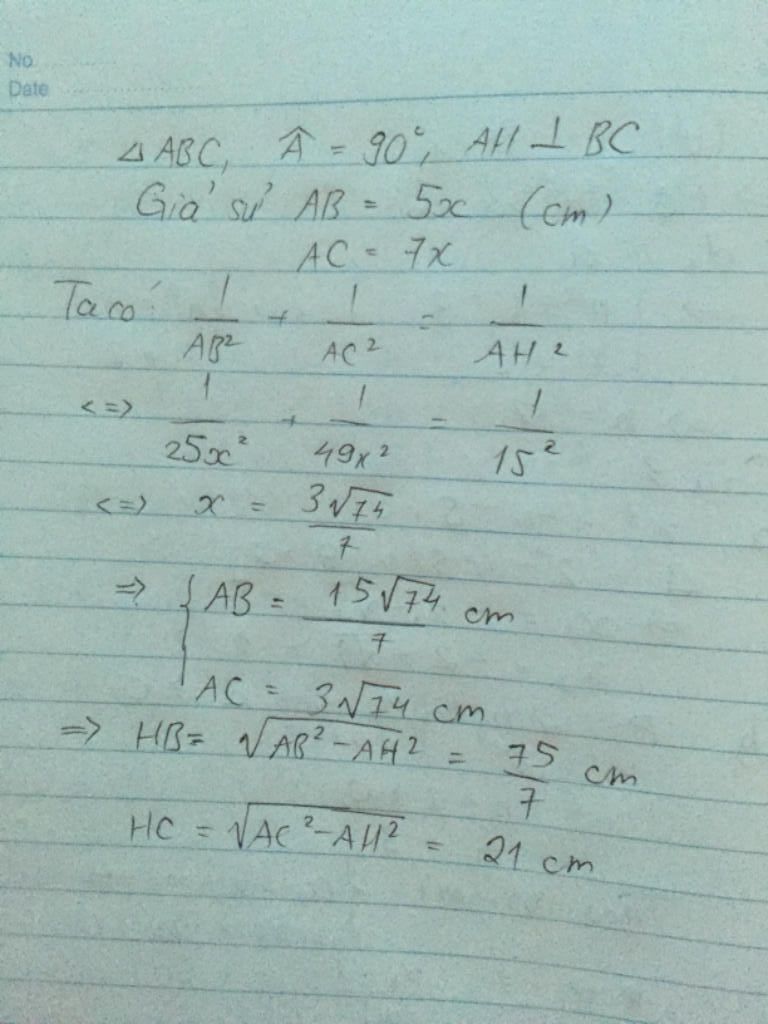 No
Date
△ABC, Â = 90°, AH ⊥ BC
Giả sử AB = 5x (cm)
AC = 7x
Ta có: 1/AB² + 1/AC² = 1/AH²
<=> 1/25x² + 1/49x² = 1/15²
<=> x = 3√74/7
=> { AB = 15√74/7 cm
AC = 3√74 cm
=> HB = √(AB² - AH²) = 75/7 cm
HC = √(AC² - AH²) = 21 cm